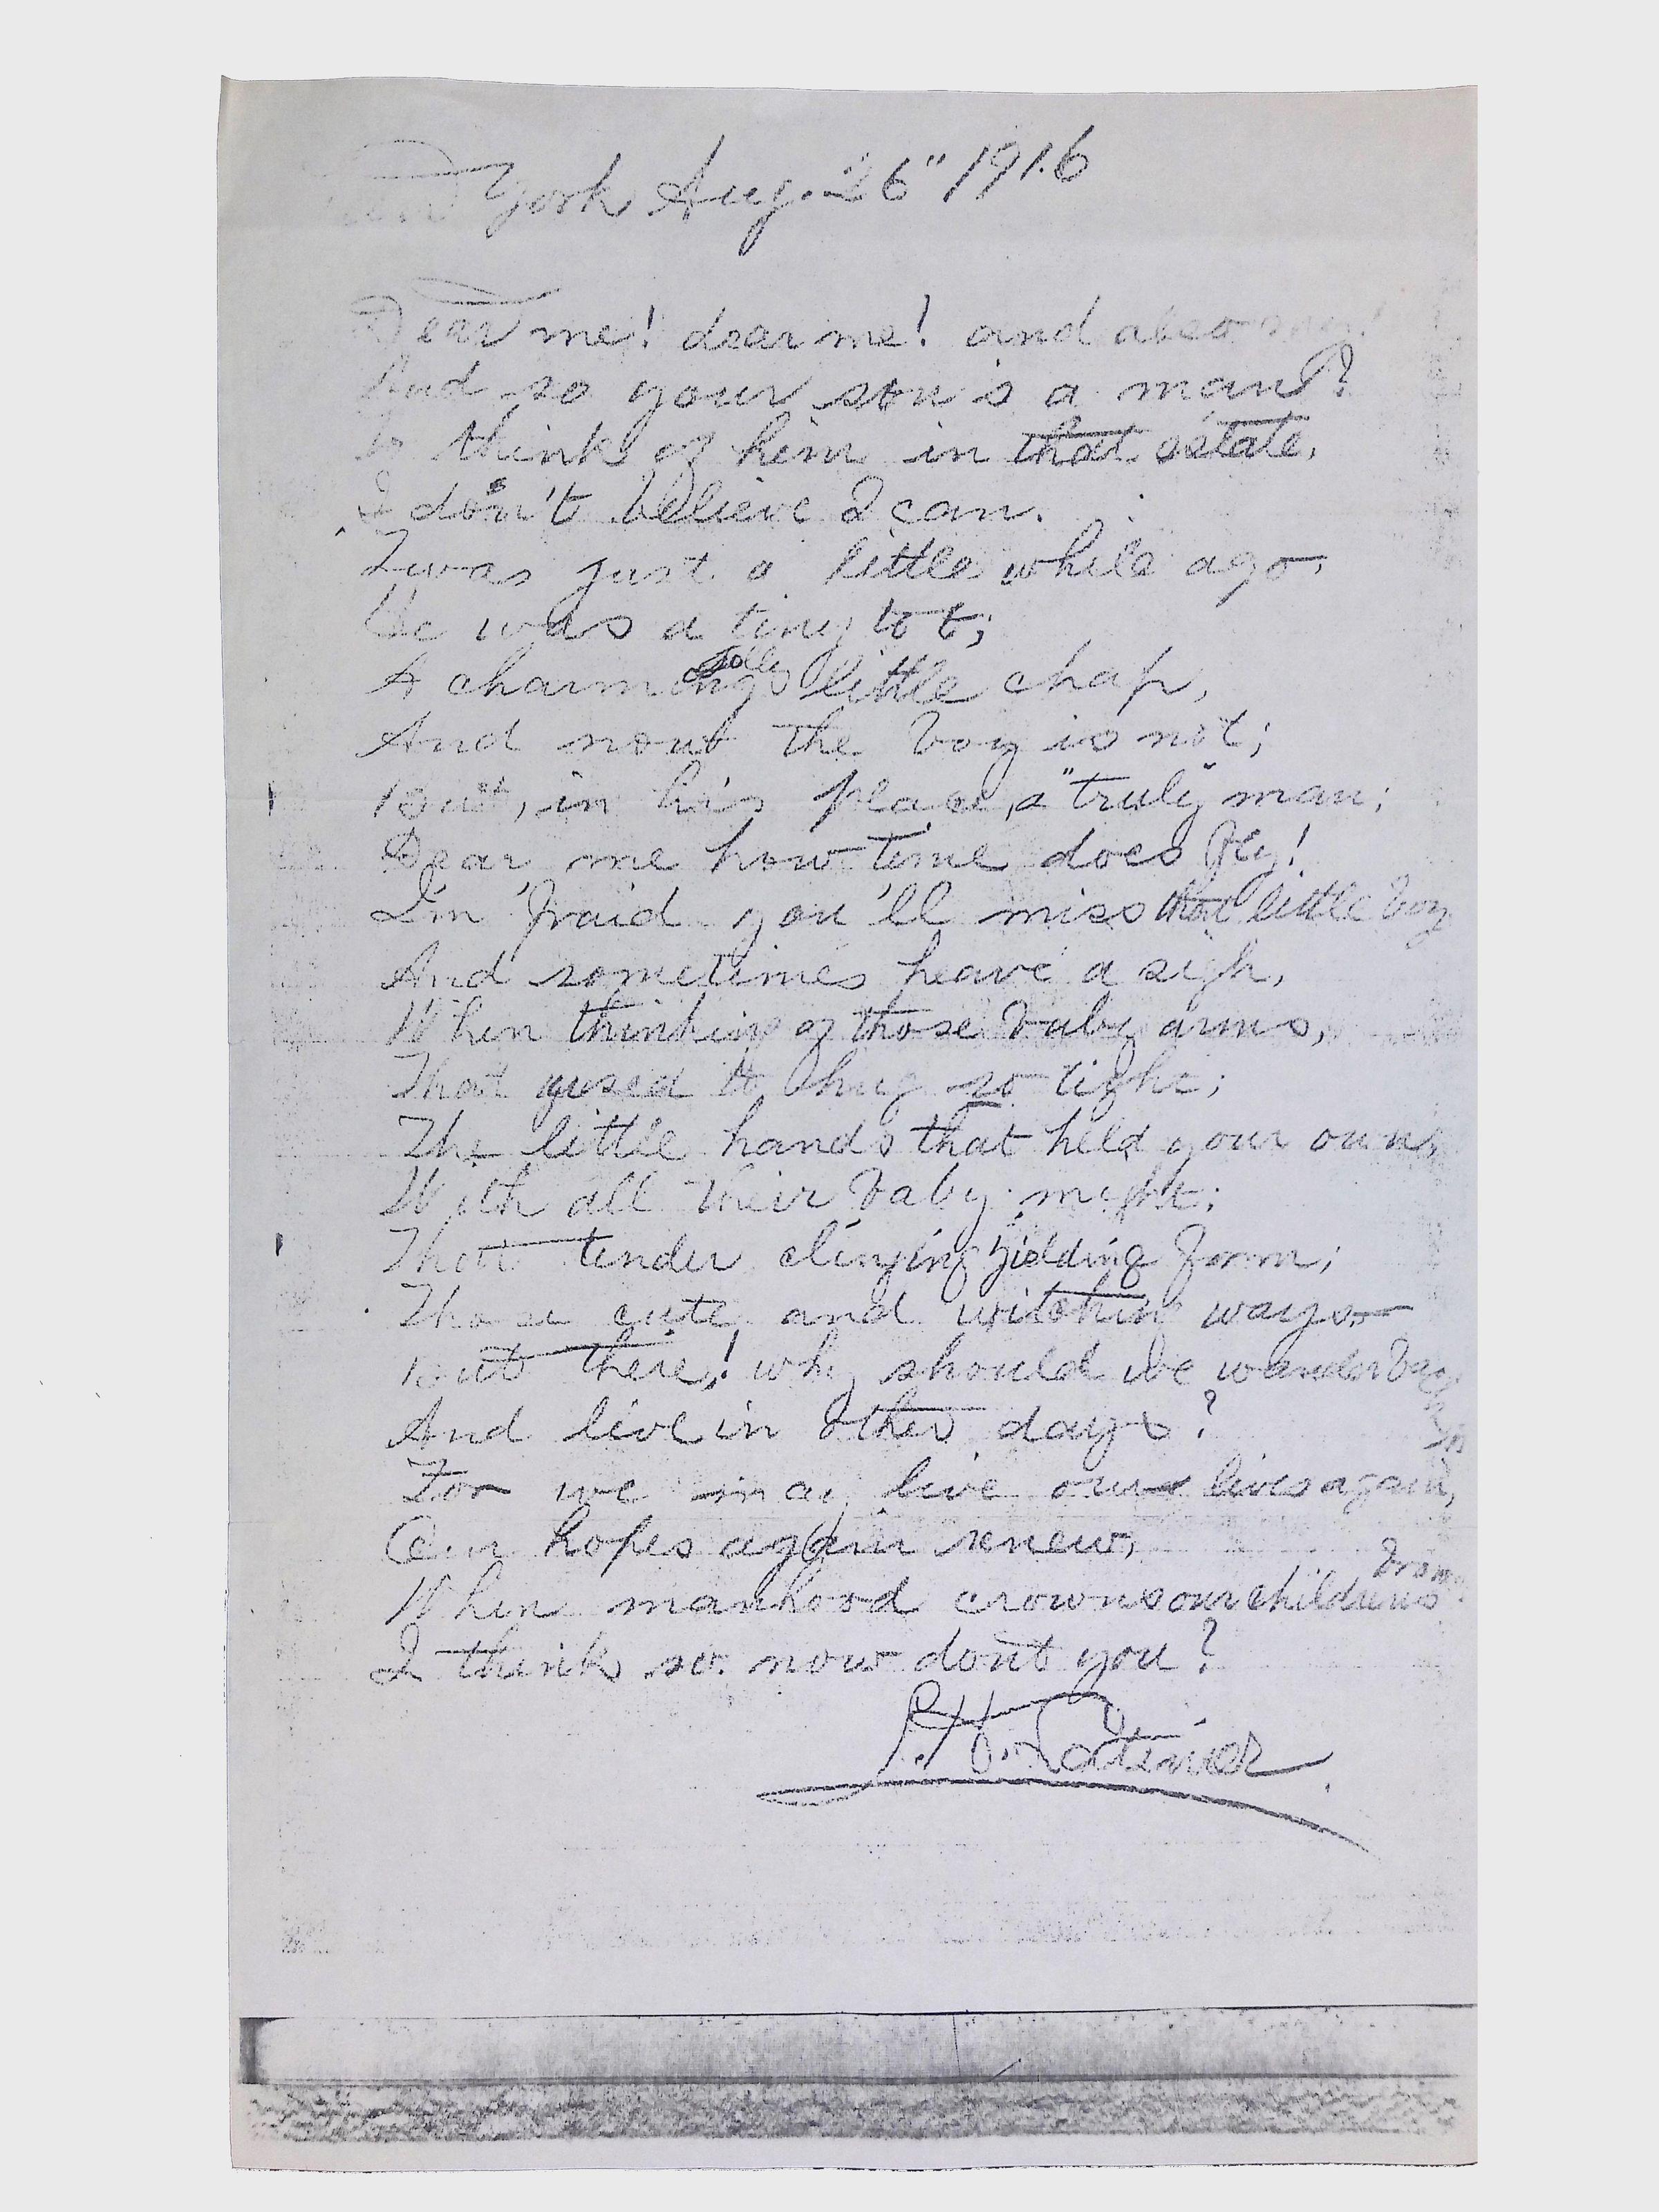 New York Aug. 26" 1916
Dear me! dear me! and also my!
And so your son's a man?
To think of him in that estate,
I don't believe I can.
Twas just a little while ago,
He was a tiny tot;
A charming jolly little chap,
And now the boy is not;
But, in his place, a "truly" man;
Dear me how time does fly!
I'm 'fraid you'll miss that little boy
And sometimes heave a sigh,
When thinking of those baby arms,
That used to hug so tight;
The little hands that held your own,
With all their baby might;
That tender clinging yielding form;
Those cute, and witching ways—
But there! why should we wander back
And live in other days?
For we may live our lives again,
Our hopes again renew,
When manhood crowns our childrens brows
I think so. now don't you?
L. H. Latimer